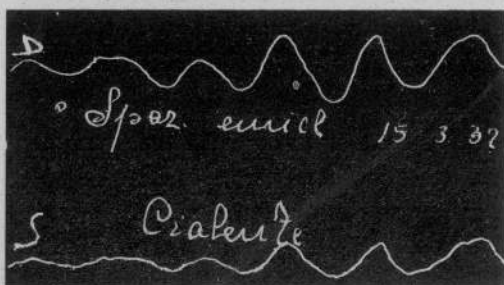 D
° Spaz. enrich 15 3 32
S Cialente